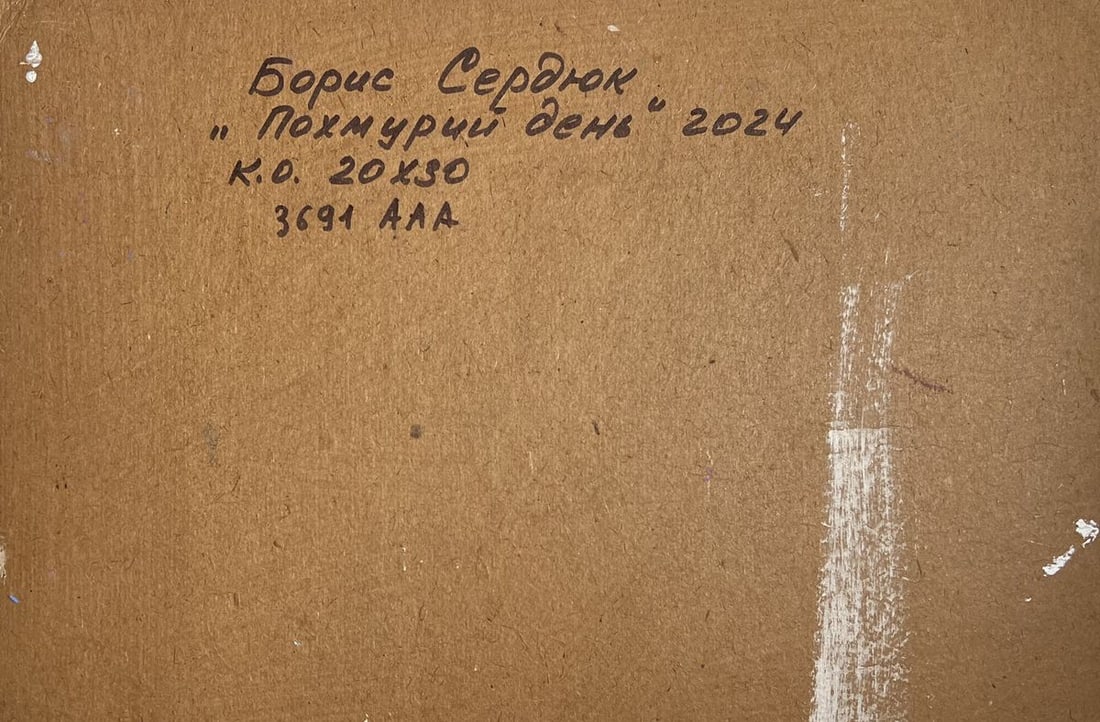 Борис Сердюк
„Похмурий день" 2024
К.О. 20Х30
3691 ААА